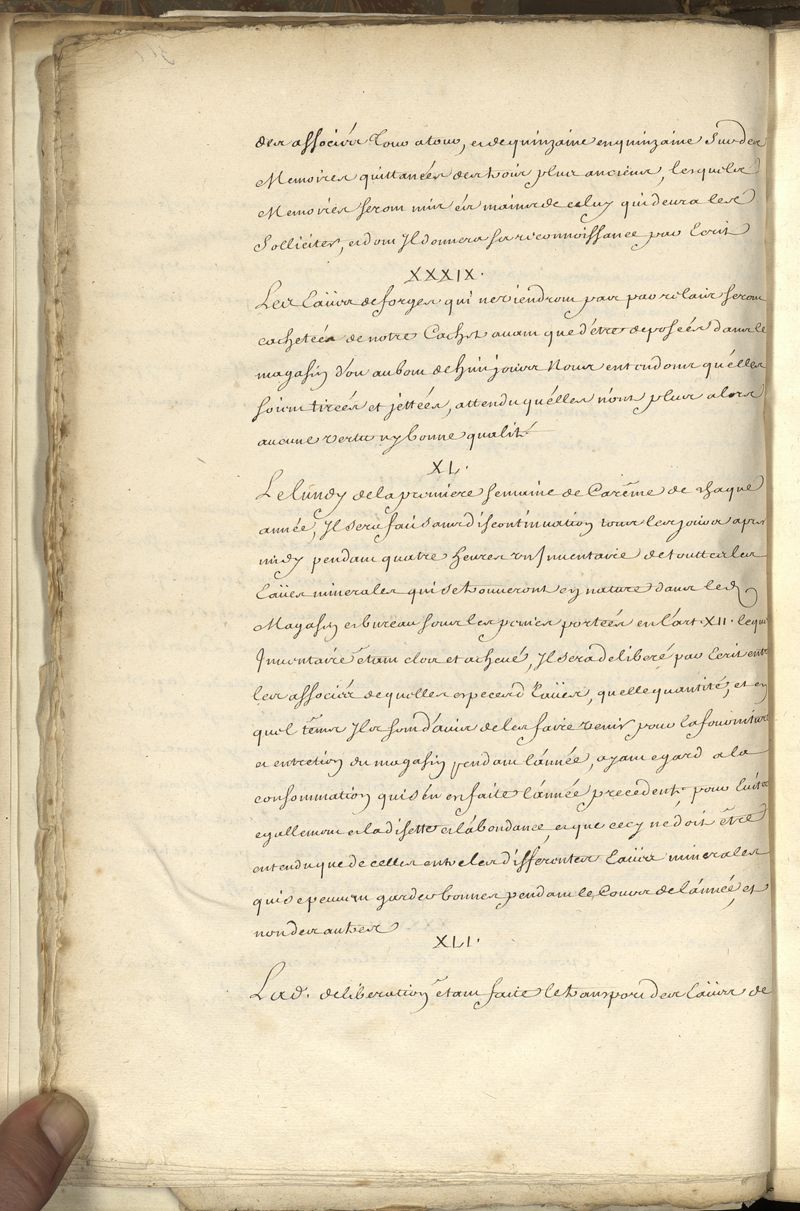 des associés Tour atour, et de quinzaine en quinzaine Sur des
Memoires quittancés des trois plus anciens, lesquels
Memoires seront mis és mains de celuy qui devra les
Solliciter, et dont Il donnera sa reconnoissance par Ecrit
XXXIX.
Les Eaües de forges qui ne viendront pas par relais seront
cachetées de notre Cachet avant que d'étre deposées dans le
magasin d'ou au bout de huit jours Nous entendons qu'elles
soient tirées et jettées, attendu qu'elles n'ont plus alors
aucune vertu ny bonne qualité
XL.
Le lundy de la premiere semaine de Carême de chaque
année, Il sera fait sans discontinuation tous les jours apres
midy pendant quatre heures un Inventaire de toutes les
Eaües minerales qui se trouveront en nature dans led.
Magasin et bureau sous les peines portées en l'art. XII. lequel
Inventaire étant clos et achevé, Il sera deliberé par Ecrit entre
les associés de quelles especes d'Eaües, quelle quantité, et en
quel têms Ils sont d'avis de les faire venir pour la fourniture
et entretien du magasin pendant l'année, ayant egard a la
consommation qui s'en en faite l'année precedente pour Eviter
egallement et la disette et l'abondance, et que cecy ne doit être
entendu que de celles entre les differentes Eaües minerales
qui se peuvent garder bonnes pendant le Cours de l'année, et
non des autres
XLI.
Lad. deliberation êtant faite le transport des Eaües de